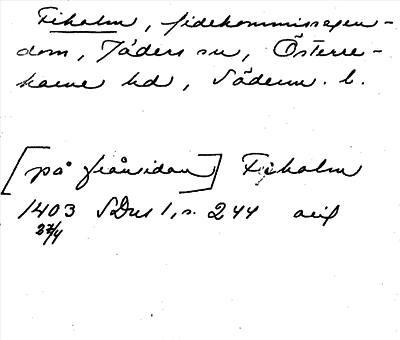 Fiholm, fideikommissegen-
dom, Jäders sn, Österre-
karne hd, Söderm. l.
[på frånsidan] Fiholm
1403 SDns 1, s. 244 avif
27/4